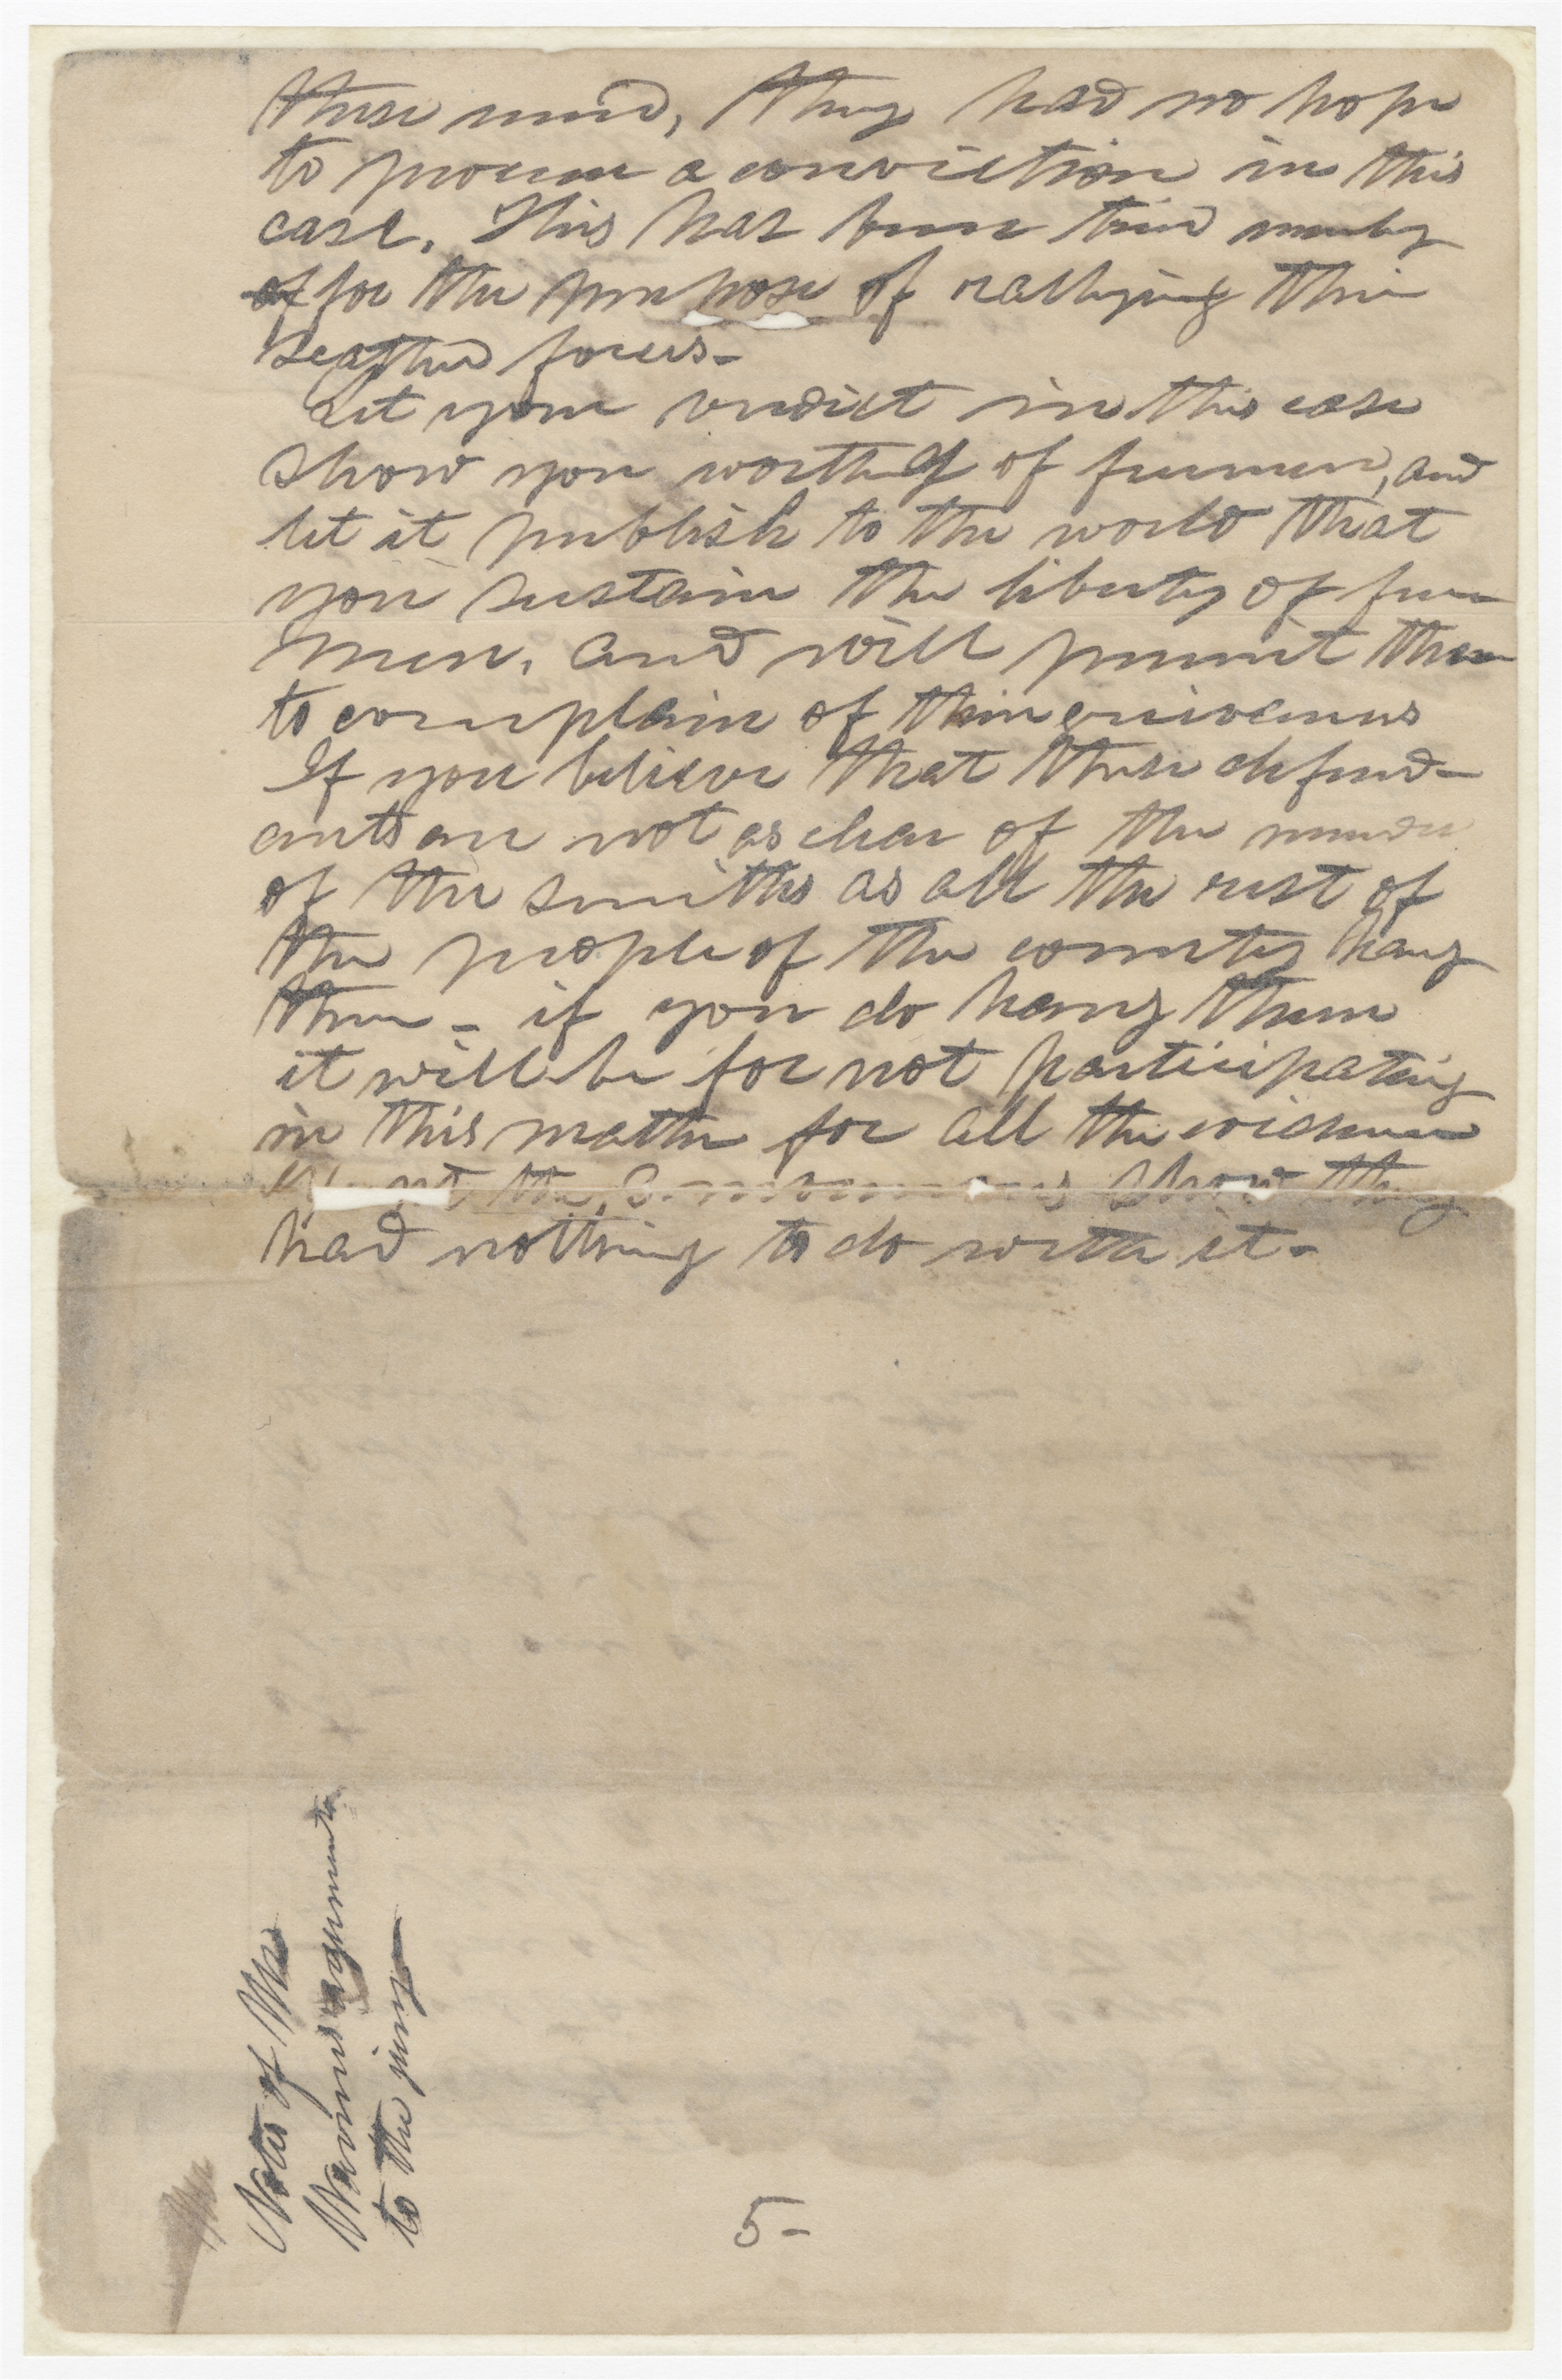 these men, They had no hope
to procure a conviction in this
case. This has been tried merely
of for the purpose of rallying their
scattered forces-
Let your verdict in this case
show you worthy of freemen, and
let it publish to the world that
you sustain the liberty of free
men, and will permit them
to complain of their grievances
If you believe that these defend-
ants are not as clear of the murder
of the Smiths as all the rest of
the people of the county hang
them - if you do hang them
it will be for not participating
in this matter for all the evidence
the show they
had nothing to do with it-
Notes of Mr
Warrens argument
to the jury
5-